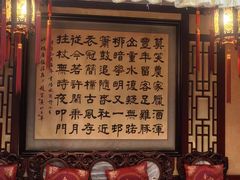 莫笑農家臘酒渾
豐年留客足雞豚
山重水複疑無路
柳暗花明又一邨
簫鼓追隨春社近
衣冠簡樸古風存
從今若許閒乘月
拄杖無時夜叩門